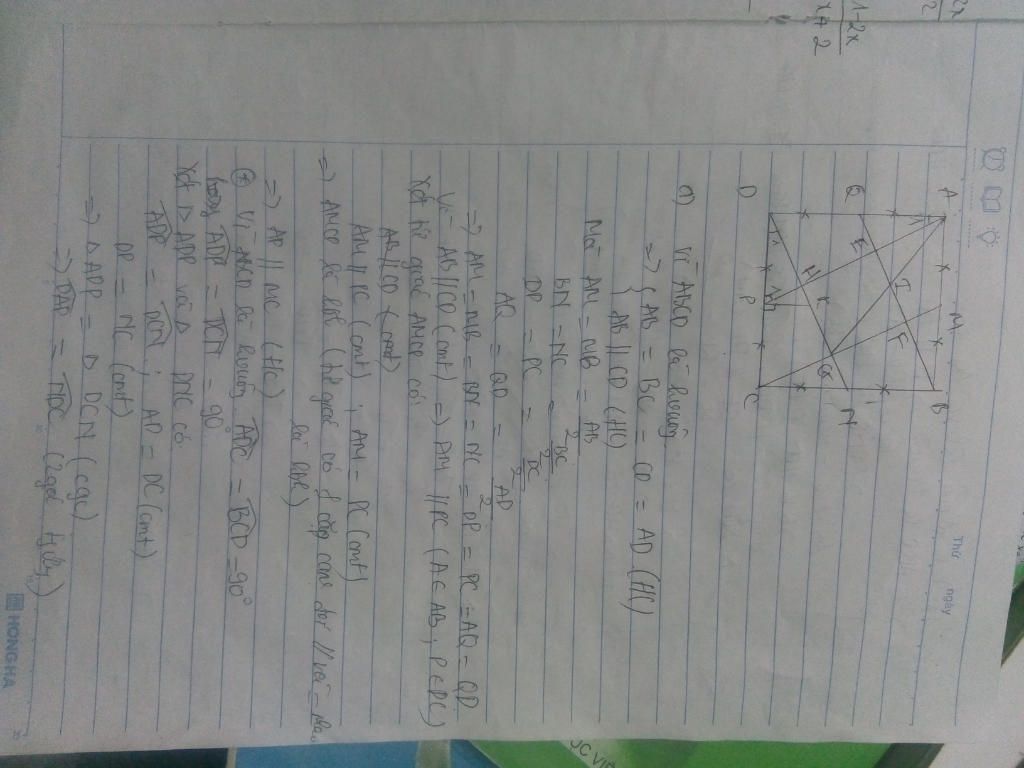 1-2x
x+2
2x
2
Thứ
ngày
A
M
B
Q
E
I
F
H
K
G
N
D
P
C
a) Vì ABCD là hvuông
=> { AB = BC = CD = AD (t/c)
AB // CD (t/c)
Mà AM = MB = AB/2
BN = NC = BC/2
DP = PC = DC/2
AQ = QD = AD/2
=> AM = MB = BN = NC = DP = PC = AQ = QD
Vì AB // CD (cmt) => AM // PC
Xét tứ giác AMCP có
AB // CD (cmt)
AM // PC (cmt) ; AM = PC (cmt)
=> AMCP là hbh (tứ giác có 1 cặp cạnh đối // và =
là hbh)
=> AP // MC (t/c)
+ Vì ABCD là hvuông ADC = BCD = 90°
hay ADP = DCN = 90°
Xét Δ ADP và Δ DNC có
ADP = DCN ; AD = DC (cmt)
DP = NC (cmt)
=> Δ ADP = Δ DCN (cgc)
=> DAP = NDC (2 góc tứ)
HONG HA
ỤC VI